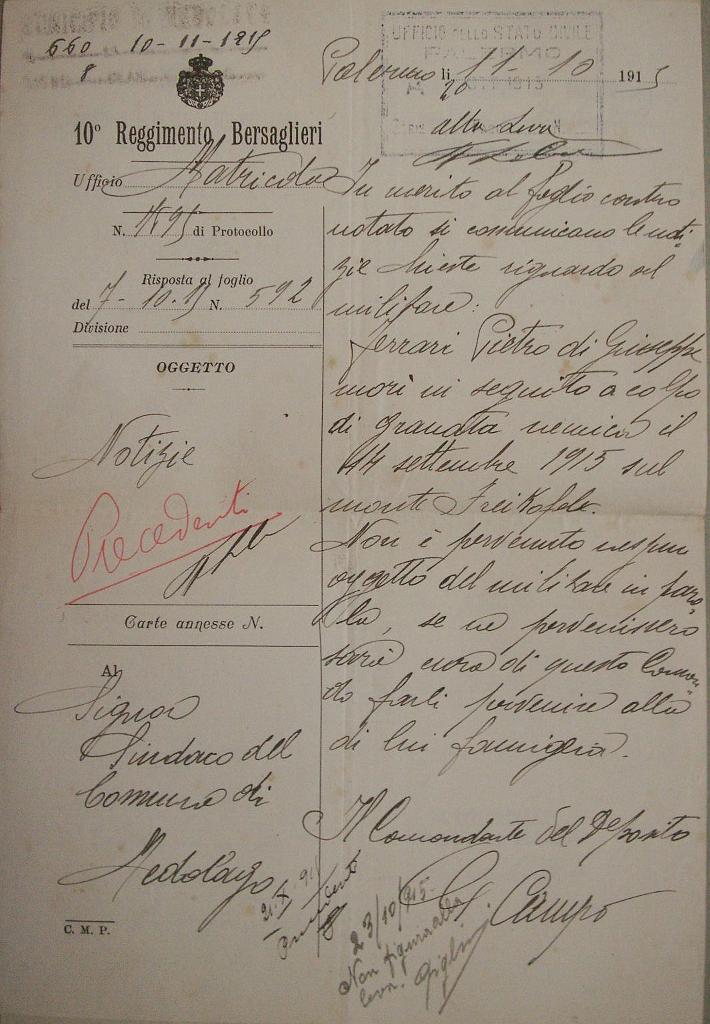 660 10-11-1915
8
10° Reggimento Bersaglieri
Ufficio Matricola
N. di Protocollo
Risposta al foglio
del 7-10.15 N. 592
Divisione
OGGETTO
Notizie
Precedenti
Carte annesse N.
Al
Signor
Sindaco del
Comune di
Medolago
C. M. P.
UFFICIO DELLO STATO CIVILE
PALERMO
Palermo li 11-10 1915
20
alla Leva
In merito al foglio contro
notato si comunicano le noti
zie chieste riguardo al
militare:
Ferrari Pietro di Giuseppe
morì in seguito a colpo
di granata nemica il
14 settembre 1915 sul
monte Freikofele.
Non è pervenuto nessun
oggetto del militare in paro
la, se ne pervenissero
sarà cura di questo Coman
do farli pervenire alla
di lui famiglia.
Il Comandante del Deposito
G. Campo
Precedenti
23/10/915-
Non figura alla
leva.